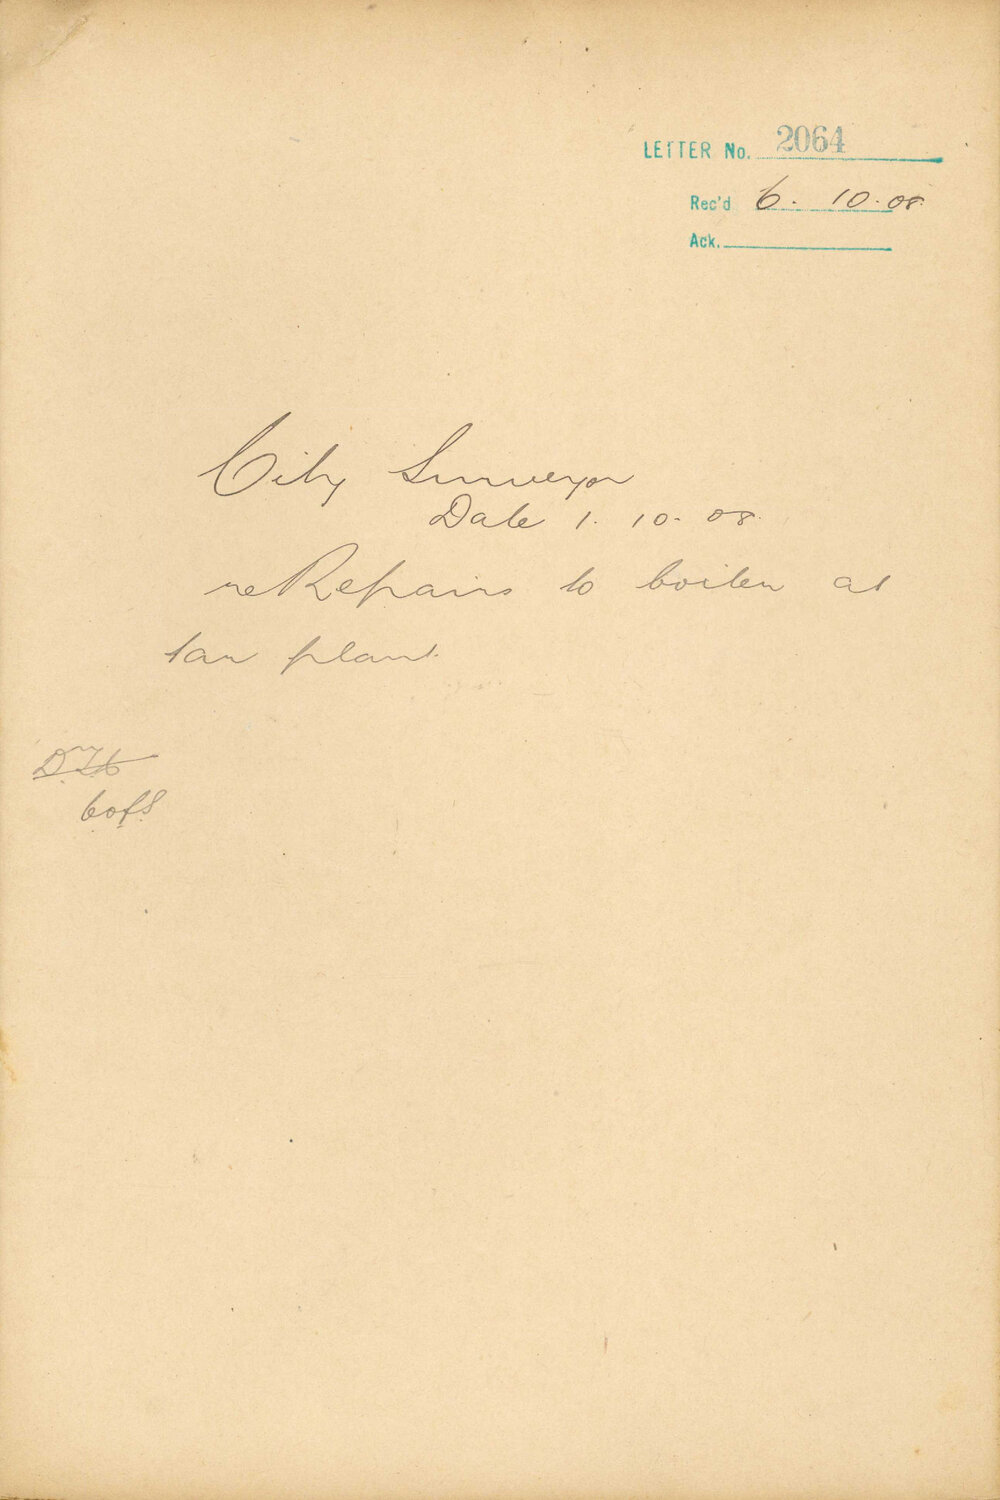 LETTER No. 2064
Rec'd 6. 10. 08.
Ack.
City Surveyor
Date 1. 10. 08.
re Repairs to boiler at
tar plant.
C of S